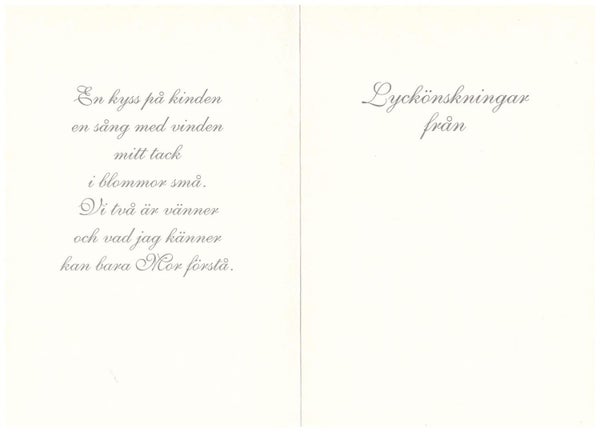 En kyss på kinden
en sång med vinden
mitt tack
i blommor små.
Vi två är vänner
och vad jag känner
kan bara Mor förstå.
Lyckönskningar
från